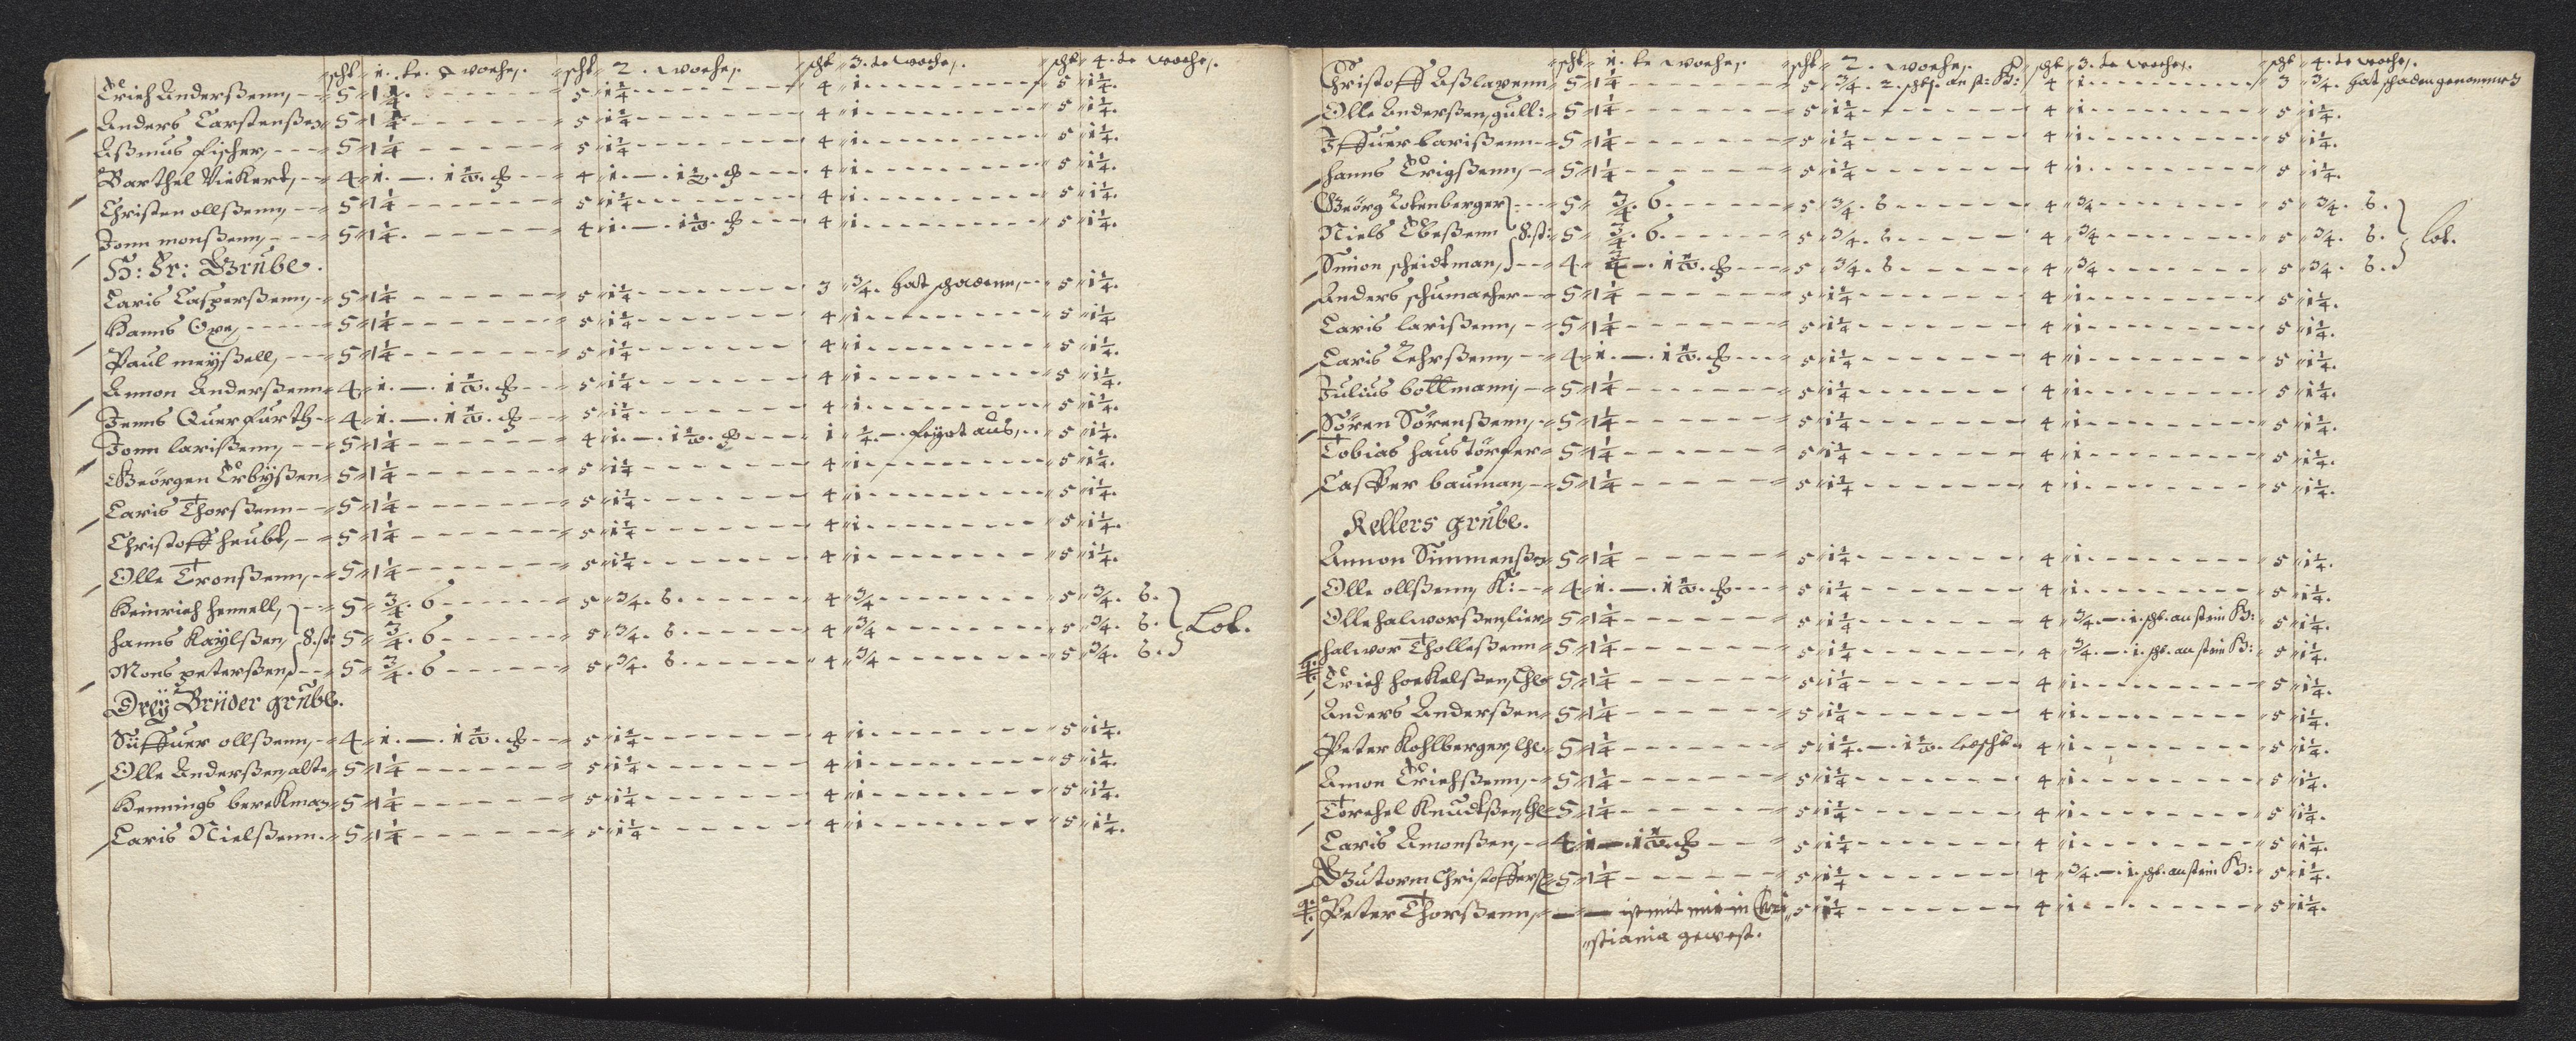 scht 1. te. woche, scht 2. woche, scht 3. te woche, scht 4. te woche,
Erich Anderßenn, 5 1¼ 5 1¼ 4 1 5 1¼.
Anders Carstenßen 5 1¼ 5 1¼ 4 1 5 1¼.
Aßmus Fischer, 5 1¼ 5 1¼ 4 1 5 1¼.
Barthel Viekert, 4 1. — 1 4 1. — 1 4 1 5 1¼.
Christen ollßenn, 5 1¼ 5 1¼ 4 1 5 1¼.
Jonn monßenn, 5 1¼. 4 1. — 1 4 1 5 1¼.
H: Fr: Grube.
Laris Casperßenn, 5 1¼ 5 1¼ 3 ¾. hat schadenn, 5 1¼.
Hanns Oxe, 5 1¼ 5 1¼ 4 1 5 1¼
Paul meÿßell, 5 1¼ 5 1¼ 4 1 5 1¼.
Amon Anderßenn 4 1. — 1 5 1¼ 4 1 5 1¼.
Jenns Querfurth 4 1. — 1 5 1¼ 4 1 5 1¼.
Jonn larißenn, 5 1¼ 4 1. — 1 1 ¼ — aus, 5 1¼.
Geörgen Erbÿßen 5 1¼ 5 1¼ 4 1 5 1¼.
Laris Thorßenn 5 1¼ 5 1¼ 4 1 5 1¼.
Christoff heubt, 5 1¼ 5 1¼ 4 1 5 1¼.
Olle Tronßenn, 5 1¼ 5 1¼ 4 1 5 1¼.
Heinrich hennell, 5 ¾. 6 5 ¾. 6. 4 ¾ 5 ¾. 6.
hanns Kaÿlßen, 8. st: 5 ¾. 6 5 ¾. 6. 4 ¾ 5 ¾. 6. Lot.
Mons peterßen 5 ¾. 6 5 ¾. 6. 4 ¾ 5 ¾. 6.
Dreÿ Brüder grube.
Süffuer ollßenn, 4 1. — 1 5 1¼ 4 1 5 1¼.
Olle Anderßen alte 5 1¼ 5 1¼ 4 1 5 1¼.
Hennings berekman 5 1¼ 5 1¼ 4 1 5 1¼.
Laris Nielßenn. 5 1¼ 5 1¼ 4 1 5 1¼.
scht 1. te woche, scht 2. woche, scht 3. te woche, scht 4. te woche,
Christoff Aßlaxenn 5 1¼ 5 ¾. 2. an st: 4 1 3 ¾. hat schaden genommen
Olle Anderßen, gull: 5 1¼ 5 1¼ 4 1 5 1¼.
Iffuer larißenn 5 1¼ 5 1¼ 4 1 5 1¼.
hanns Erigßenn, 5 1¼ 5 1¼ 4 1 5 1¼.
Geörg Lotenberger 5 ¾. 6 5 ¾. 6 4 ¾ 5 ¾. 6.
Niels Ebeßenn 8. st: 5 ¾. 6. 5 ¾. 6 4 ¾ 5 ¾. 6. lot.
Simon scheidtman, 4 ¾ —. 1 5 ¾. 6 4 ¾ 5 ¾. 6.
Anders schumacher 5 1¼ 5 1¼ 4 1 5 1¼.
Laris larißenn, 5 1¼ 5 1¼ 4 1 5 1¼.
Laris Lehrßenn, 4 1. —. 1 5 1¼ 4 1 5 1¼.
Julius bottmann, 5 1¼ 5 1¼ 4 1 5 1¼.
Sören Sörenßenn, 5 1¼ 5 1¼ 4 1 5 1¼.
Tobias haustörfer 5 1¼ 5 1¼ 4 1 5 1¼.
Casper bauman, 5 1¼ 5 1¼ 4 1 5 1¼.
Kellers grube.
Amon Simmenßen 5 1¼ 5 1¼ 4 1 5 1¼.
Olle ollßenn, K: 4 1. — 1 5 1¼ 4 1 5 1¼.
Olle halworßen, lier 5 1¼ 5 1¼ 4 ¾. — 1. scht. an stein 5 1¼.
halwor Tholleßenn 5 1¼ 5 1¼ 4 ¾. — 1. scht. an stein 5 1¼.
Erich hoekelßen, 5 1¼ 5 1¼ 4 1 5 1¼.
Anders Anderßen 5 1¼ 5 1¼ 4 1 5 1¼.
Peter Kohlberger, 5 1¼ 5 1¼. — 1 4 1 5 1¼.
Amon Erichßenn, 5 1¼ 5 1¼ 4 1 5 1¼.
Torchel Knudtßen, 5 1¼ 5 1¼ 4 1 5 1¼.
Laris Amonßen, 4 1 — 1 5 1¼ 4 1 5 1¼.
Gutorm Christoffers 5 1¼ 5 1¼ 4 ¾. — 1. scht. an stein 5 1¼.
Peter Thorßenn, — ist mit mir in Cri 5 1¼ 4 1 5 1¼.
stiania gewest.